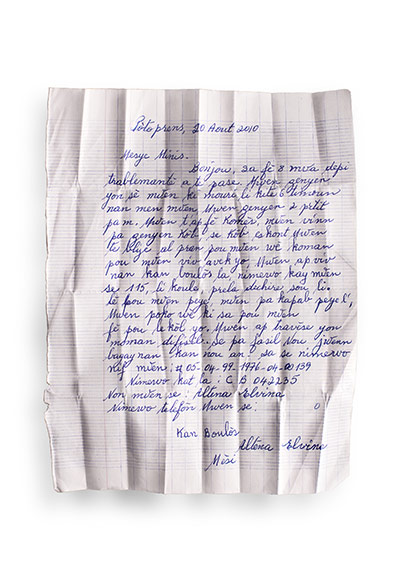 Pòto prens, 20 Aout 2010
Mesye Minis.
Bonjou, sa fè 8 mwa depi
trablemanté a te pase. Mwen genyen
yon sè mwen ki mouri li kite 6 timoun
nan men mwen. Mwen genyen 2 pitit
pam. Mwen t'ap fè komès, mwen vinn
pa genyen kòb, se kòb eskont Mwen
te blije al pran pou mwen wè koman
pou mwen viv avèk yo. Mwen ap viv
nan kan boulòs la nimewo kay mwen
se 115, li koule, prela dechire sou li.
lè pou mwen peye, mwen pa kapab peye l',
Mwen poko wè ki sa pou mwen
fè pou lekòl yo. Mwen ap travèse yon
moman difisil. Se pa fasil Nou jwenn
bagay nan kan nou an. sa se nimewo
nif mwen: # 05-04-99-1976-04-00139
Nimewo kat la: CB 042235
Non mwen se: Altena Elvina
Nimewo telefòn Mwen se: 0
Kan Boulòs
Altena Elvina
Mèsi